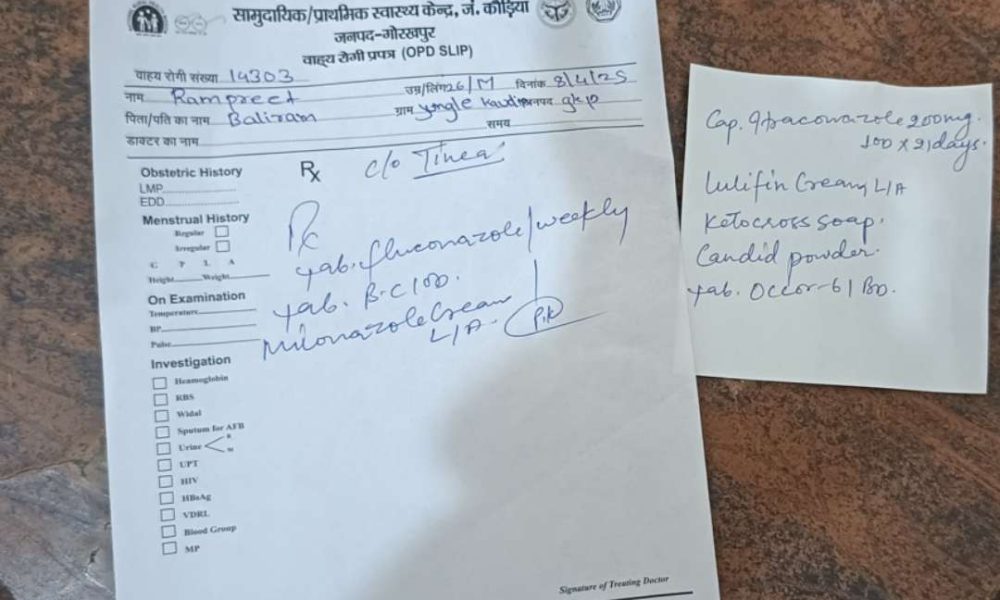 सामुदायिक/प्राथमिक स्वास्थ्य केन्द्र, जं. कौड़िया
जनपद-गोरखपुर
वाह्य रोगी प्रपत्र (OPD SLIP)
वाह्य रोगी संख्या 14303 उम्र/लिंग 26/M दिनांक 8/4/25
नाम Rampreet ग्राम Jungle Kaudia जनपद gkp
पिता/पति का नाम Baliram समय
डाक्टर का नाम
Obstetric History
LMP
EDD
Menstrual History
Regular
Irregular
G P L A
Height Weight
On Examination
Temperature
BP
Pulse
Investigation
Heamoglobin
RBS
Widal
Sputum for AFB
Urine R M
UPT
HIV
HBsAg
VDRL
Blood Group
MP
Rx c/o Tinea
Rx
Tab. fluconazole/weekly
Tab. B-C 1OD.
Miconazole Cream
L/A.
Signature of Treating Doctor
Cap. Itraconazole 200mg.
1OD x 21 days.
Lulifin Cream L/A
Ketocross soap.
Candid powder.
Tab. Occor-6 1 BD.